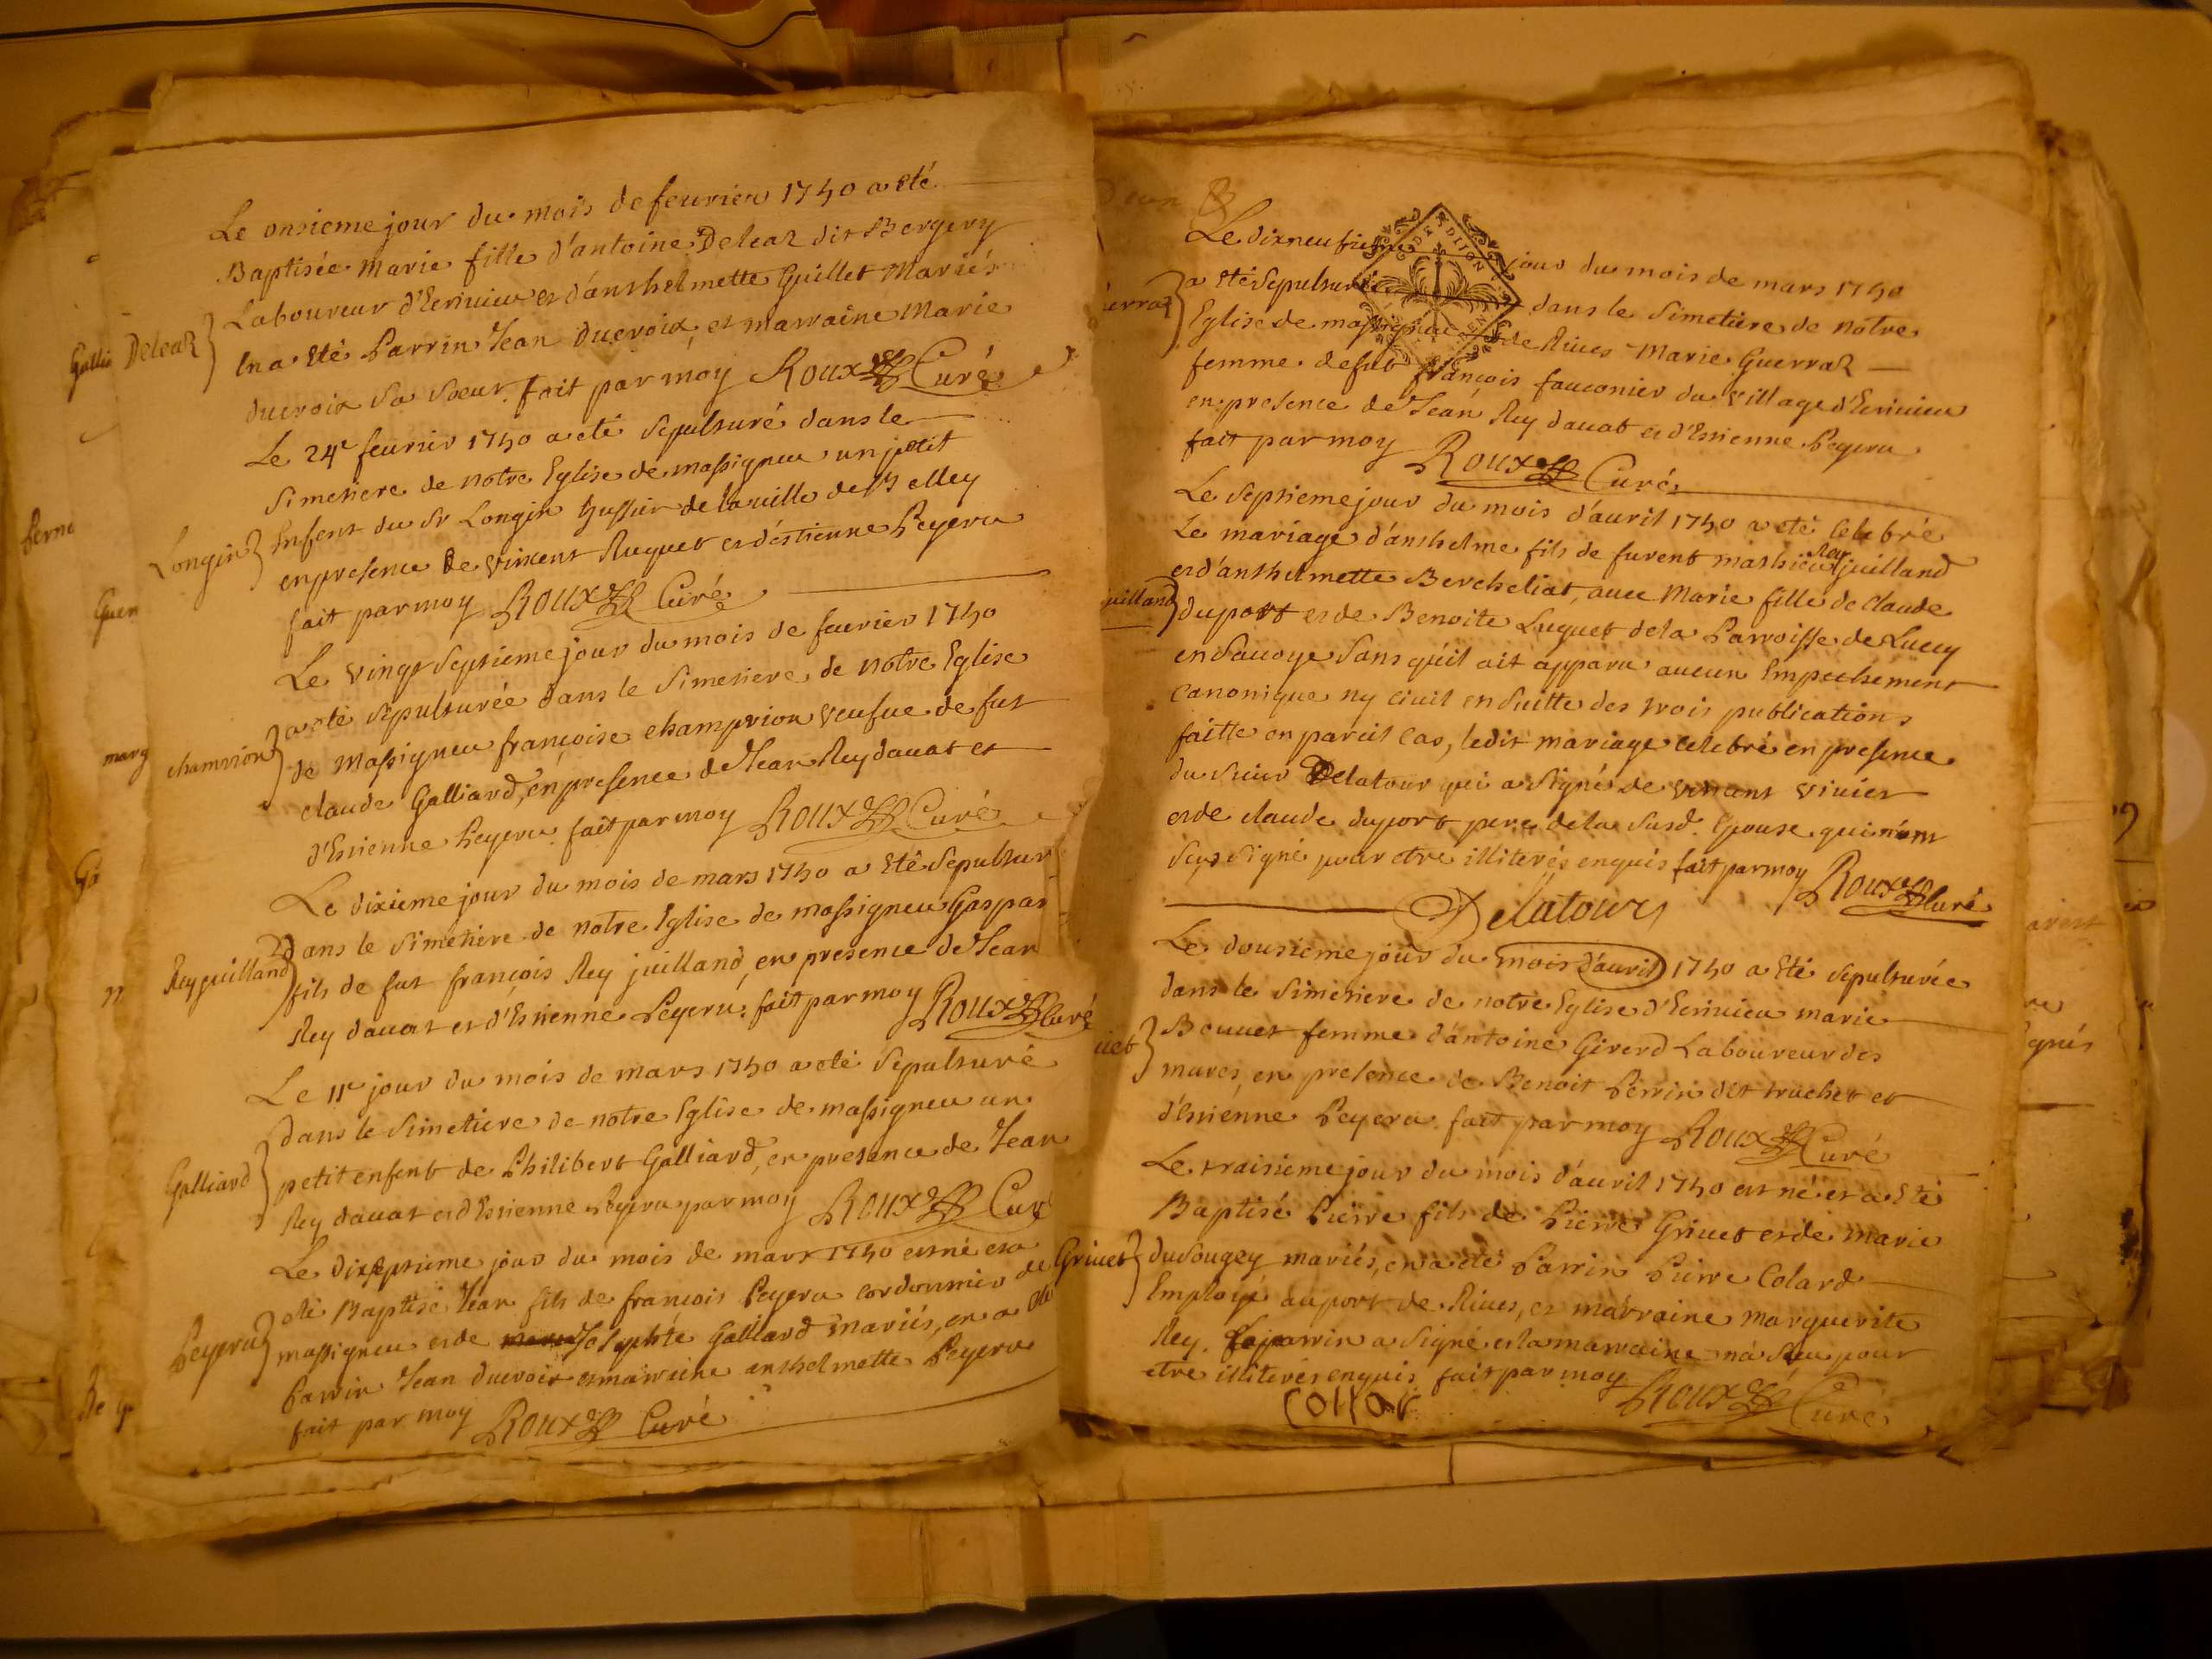 Le onsieme jour du mois de feurier 1740 a eté
Baptisée Marie fille d'antoine Deleaz dit Bergery
Laboureur d'Ecriuieu et d'anthelmette Guillet Mariés
Deleaz
En a eté Parrin Jean Ducroix et marraine Marie
ducroix sa soeur. fait par moy Roux Curé
Le 24e feurier 1740 a eté sepulturé dans le
Simetiere de notre Eglise de massigneu un petit
Longin
Enfent du Sr Longin huissier de la uille de Belley
en presence de Vincent Ruquet et d'estienne Peyeru
fait par moy Roux Curé
Le vingt septieme jour du mois de feurier 1740
a eté sepulturée dans le Simetiere de notre Eglise
champrion
de Massigneu françoise champrion veufue de fut
claude Galliard, en presence de Jean Rey dauat et
d'Estienne Peyeru fait par moy Roux Curé
Le dixieme jour du mois de mars 1740 a eté sepultur
dans le Simetiere de notre Eglise de massigneu Gaspar
Rey juilland
fils de fut françois Rey juilland en presence de Jean
Rey dauat et d'Estienne Peyeru. fait par moy Roux Curé
Le 11e jour du mois de mars 1740 a eté sepulturé
dans le Simetiere de notre Eglise de massigneu un
Galliard
petit enfent de Philibert Galliard, en presence de Jean
Rey dauat et d'Estienne Peyeru par moy Roux Cur
Le dixseptieme jour du mois de mars 1740 est né et a
eté Baptisé Jean fils de francois Peyeru cordonnier de
Peyeru
massigneu et de Josephte Galliard mariés, en a eté
Parrin Jean ducroix et marreine anthelmette Peyeru
fait par moy Roux Curé
Le dixneufieme jour du mois de mars 1740
a eté sepulturée dans le Simetiere de notre
Eglise de massigneu de Riues Marie Guerraz
femme de fut françois fauconier du village d'Ecriuieu
en presence de Jean Rey dauat et d'Estienne Peyeru
fait par moy Roux Curé
Le septieme jour du mois d'auril 1740 a eté celebré
Le mariage d'anthelme fils de furent mathieu Rey juilland
et d'anthelmette Bercheliat, auec Marie fille de claude
duport et de Benoite Luquet de la Parroisse de Lucey
en Sauoye sans qu'il ait apparu aucun Empechement
canonique ny ciuil en suitte des trois publications
faitte en pareil cas, ledit mariage celebré en presence
du sieur Delatour qui a signé de vincent viuier
et de claude duport pere de la susd. Epouse qui n'ont
sçus signé pour etre illiterés enquis fait par moy Roux Curé
Delatour
Le dousieme jour du mois d'auril 1740 a eté sepulturée
dans le Simetiere de notre Eglise d'Ecriuieu marie
Bouuet femme d'antoine Giverd Laboureur des
mures, en presence de Benoit Perrin dit truchet et
d'Estienne Peyeru. fait par moy Roux Curé
Le traisieme jour du mois d'auril 1740 est né et a eté
Baptisé Pierre fils de Pierre Griuet et de marie
Griuet
duSougey mariés, en a eté Parrin Pierre Colard
Employé au port de Riues, et marraine marguerite
Rey. Le parrin a signé et la marraine n'a sceu pour
etre illiterés enquis fait par moy Roux Curé
Collar